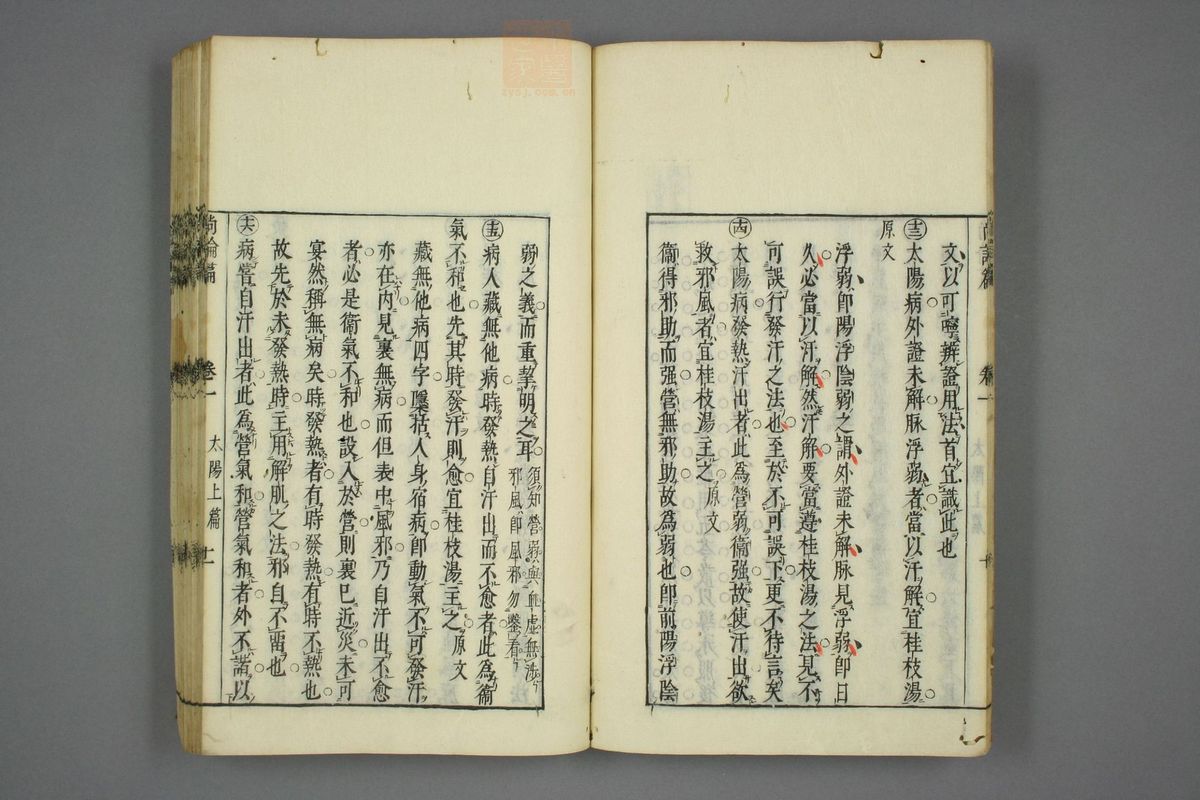 尚論篇 卷一 太陽上篇 十
文以可嚀辨證用法首宜識此也
㊂ 太陽病外證未解脉浮弱者當以汗解宜桂枝湯
原文
浮弱即陽浮陰弱之謂外證未解脉見浮弱即日
久必當以汗解然汗解要當遵桂枝湯之法見不
可誤行發汗之法也至於不可誤下更不待言矣
十四 太陽病發熱汗出者此為營弱衞強故使汗出欲
救邪風者宜桂枝湯主之 原文
衞得邪助而强營無邪助故為弱也即前陽浮陰
弱之義而重挈明之耳 須知營弱與血虛無涉
邪風即風邪勿鑿看
十五 病人藏無他病時發熱自汗出而不愈者此為衞
氣不和也先其時發汗則愈宜桂枝湯主之 原文
藏無他病四字隱括人身宿病即動氣不可發汗
亦在內見裏無病而但表中風邪乃自汗出不愈
者必是衞氣不和也設入於營則裏已近災未可
宴然稱無病矣時發熱者有時發熱有時不熱也
故先於未發熱時主用解肌之法邪自不留也
十六 病嘗自汗出者此為營氣和營氣和者外不諧以
尚論篇 卷一 太陽上篇 十一
zysj.com.cn